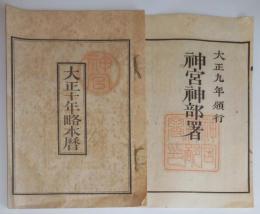 大正九年頒行
神宮神部署
大正十年略本暦